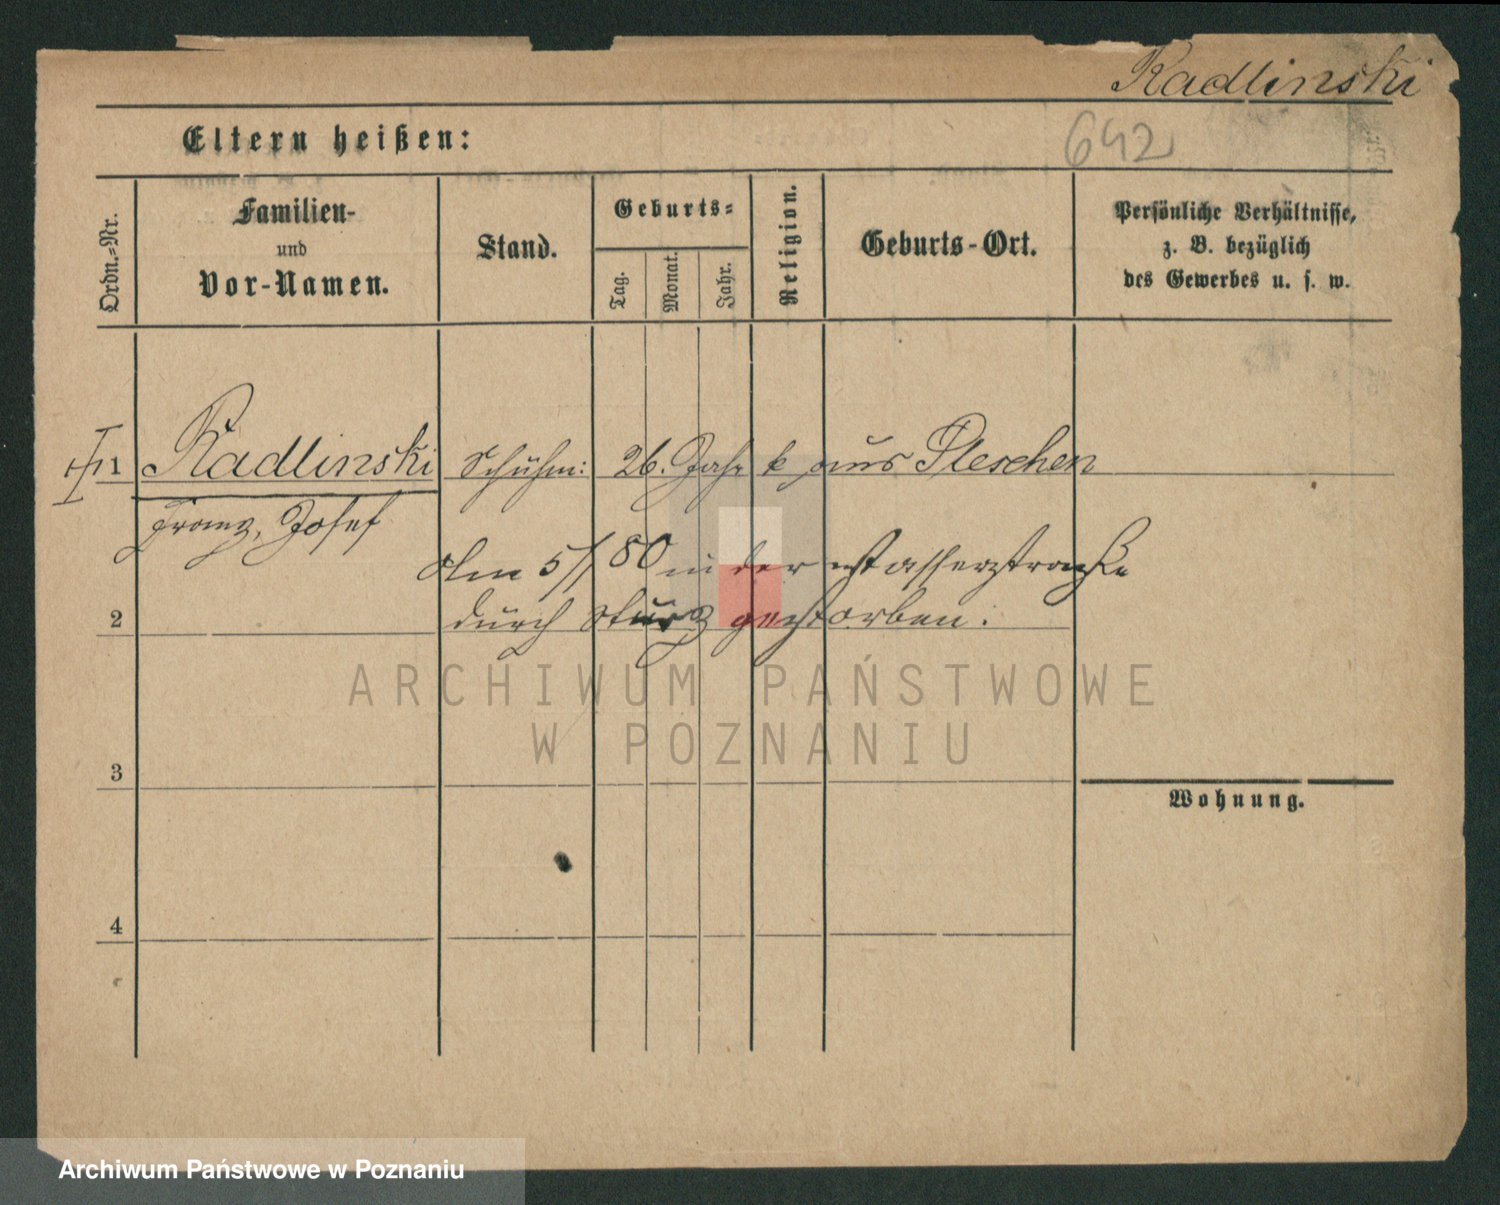 Radlinski
Eltern heißen:
642
Ordn.-Nr.
Familien-
und
Vor-Namen.
Stand.
Geburts-
Tag.
Monat.
Jahr.
Religion.
Geburts-Ort.
Persönliche Verhältnisse,
z. B. bezüglich
des Gewerbes u. s. w.
1 Radlinski Schuhm: 26. Jahr k aus Pleschen
Franz, Josef
Am 5/1 80 in der Wasserstraße
2 durch Sturz gestorben.
ARCHIWUM PAŃSTWOWE
W POZNANIU
3
Wohnung.
4
Archiwum Państwowe w Poznaniu